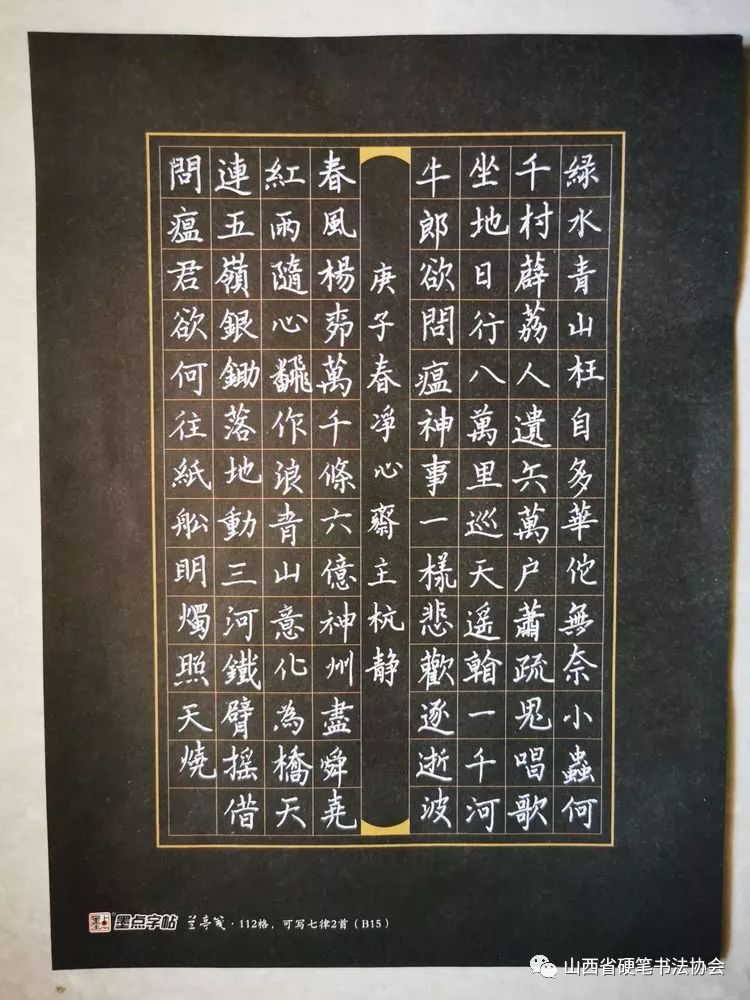 綠水青山枉自多華佗無奈小蟲何
千村薜荔人遺矢萬户蕭疏鬼唱歌
坐地日行八萬里巡天遥看一千河
牛郎欲問瘟神事一樣悲歡逐逝波
庚子春凈心齋主杭静
春風楊柳萬千條六億神州盡舜堯
紅雨隨心飜作浪青山意化為橋天
連五嶺銀鋤落地動三河鐵臂摇借
問瘟君欲何往紙舩眀燭照天燒
墨点字帖 兰亭笺·112格，可写七律2首（B15）
山西省硬笔书法协会